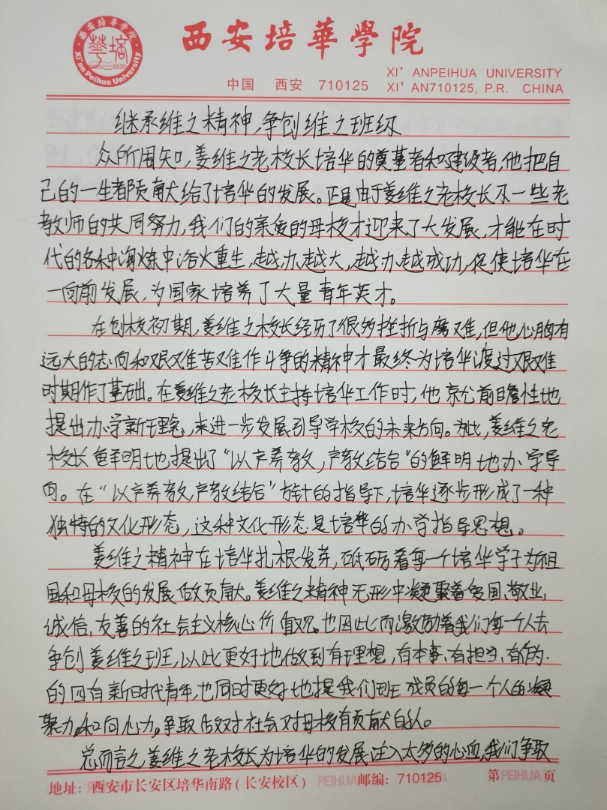 西安培華学院
XI'AN PEIHUA UNIVERSITY
中国 西安 710125 XI' ANPEIHUA UNIVERSITY
XI' AN710125, P.R. CHINA
继承维之精神,争创维之班级
众所周知,姜维之老校长培华的奠基者和建设者,他把自
己的一生都陵献给了培华的发展。正是由于姜维之老校长不一些老
教师的共同努力,我们的亲爱的母校才迎来了大发展,才能在时
代的各种淘炼中浴火重生,越办越大,越办越成功,促使培华在
一向前发展,为国家培养了大量青年英才。
在创校初期,姜维之校长经历了很多挫折与磨难,但他心胸有
远大的志向和艰难苦难作斗争的精神才最终为培华渡过艰难
时期作了基础。在姜维之老校长主持培华工作时,他就前瞻性地
提出办学新理念,来进一步发展引导学校的未来方向。为此,姜维之老
校长鲜明地提出了“以产养教,产教结合”的鲜明地办学导
向。在“以产养教,产教结合”方针的指导下,培华逐步形成了一种
独特的文化形态,这种文化形态是培华的办学指导思想。
姜维之精神在培华扎根发芽,砥砺着每一个培华学子为祖
国和母校的发展做贡献。姜维之精神无形中凝聚着爱国、敬业、
诚信、友善的社会主义核心价值观。也因此而激励着我们每一个人去
争创姜维之班,以此更好地做到有理想、有本事、有担当、有作为
的四有新时代青年,也同时更好地提我们班成员的每一个人的凝
聚力和向心力,争取做对社会对母校有贡献的人。
总而言之,姜维之老校长为培华的发展注入太多的心血,我们争取
地址:西安市长安区培华南路(长安校区) 邮编:710125 第 页